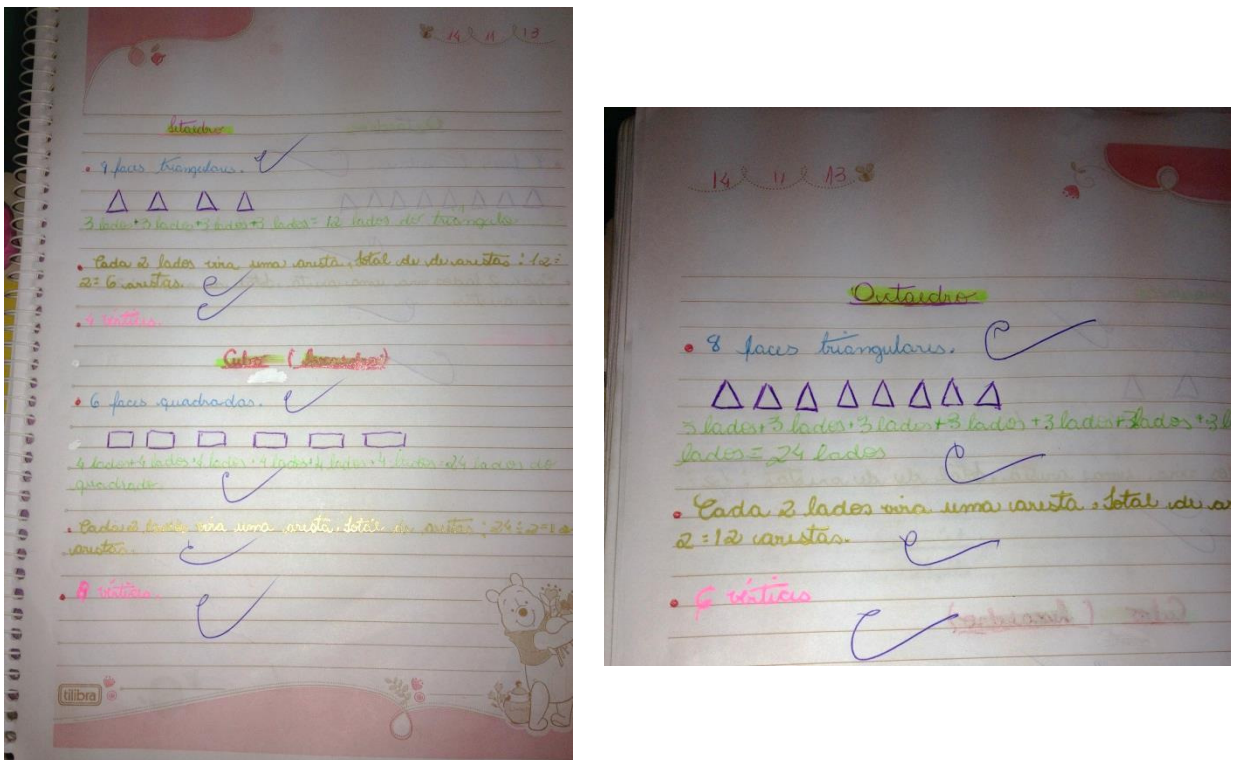 14 11 13
faces triangulares.
3 lados+3 lados+3 lados+3 lados= 12 lados do triângulo
Cada 2 lados vira uma aresta, total de de arestas : 12÷
2= 6 arestas.
4 vértices.
Cubo (hexaedro)
6 faces quadradas.
4 lados+4 lados+4 lados+4 lados+4 lados+4 lados=24 lados do
quadrado.
Cada 2 lados vira uma aresta, total de arestas : 24÷2=1
arestas.
8 vértices.
tilibra
14 11 13
Octaedro
8 faces triangulares.
3 lados+3 lados+3 lados+3 lados+3 lados+3 lados+3 l
lados= 24 lados
Cada 2 lados vira uma aresta, total de a
2=12 arestas.
6 vértices